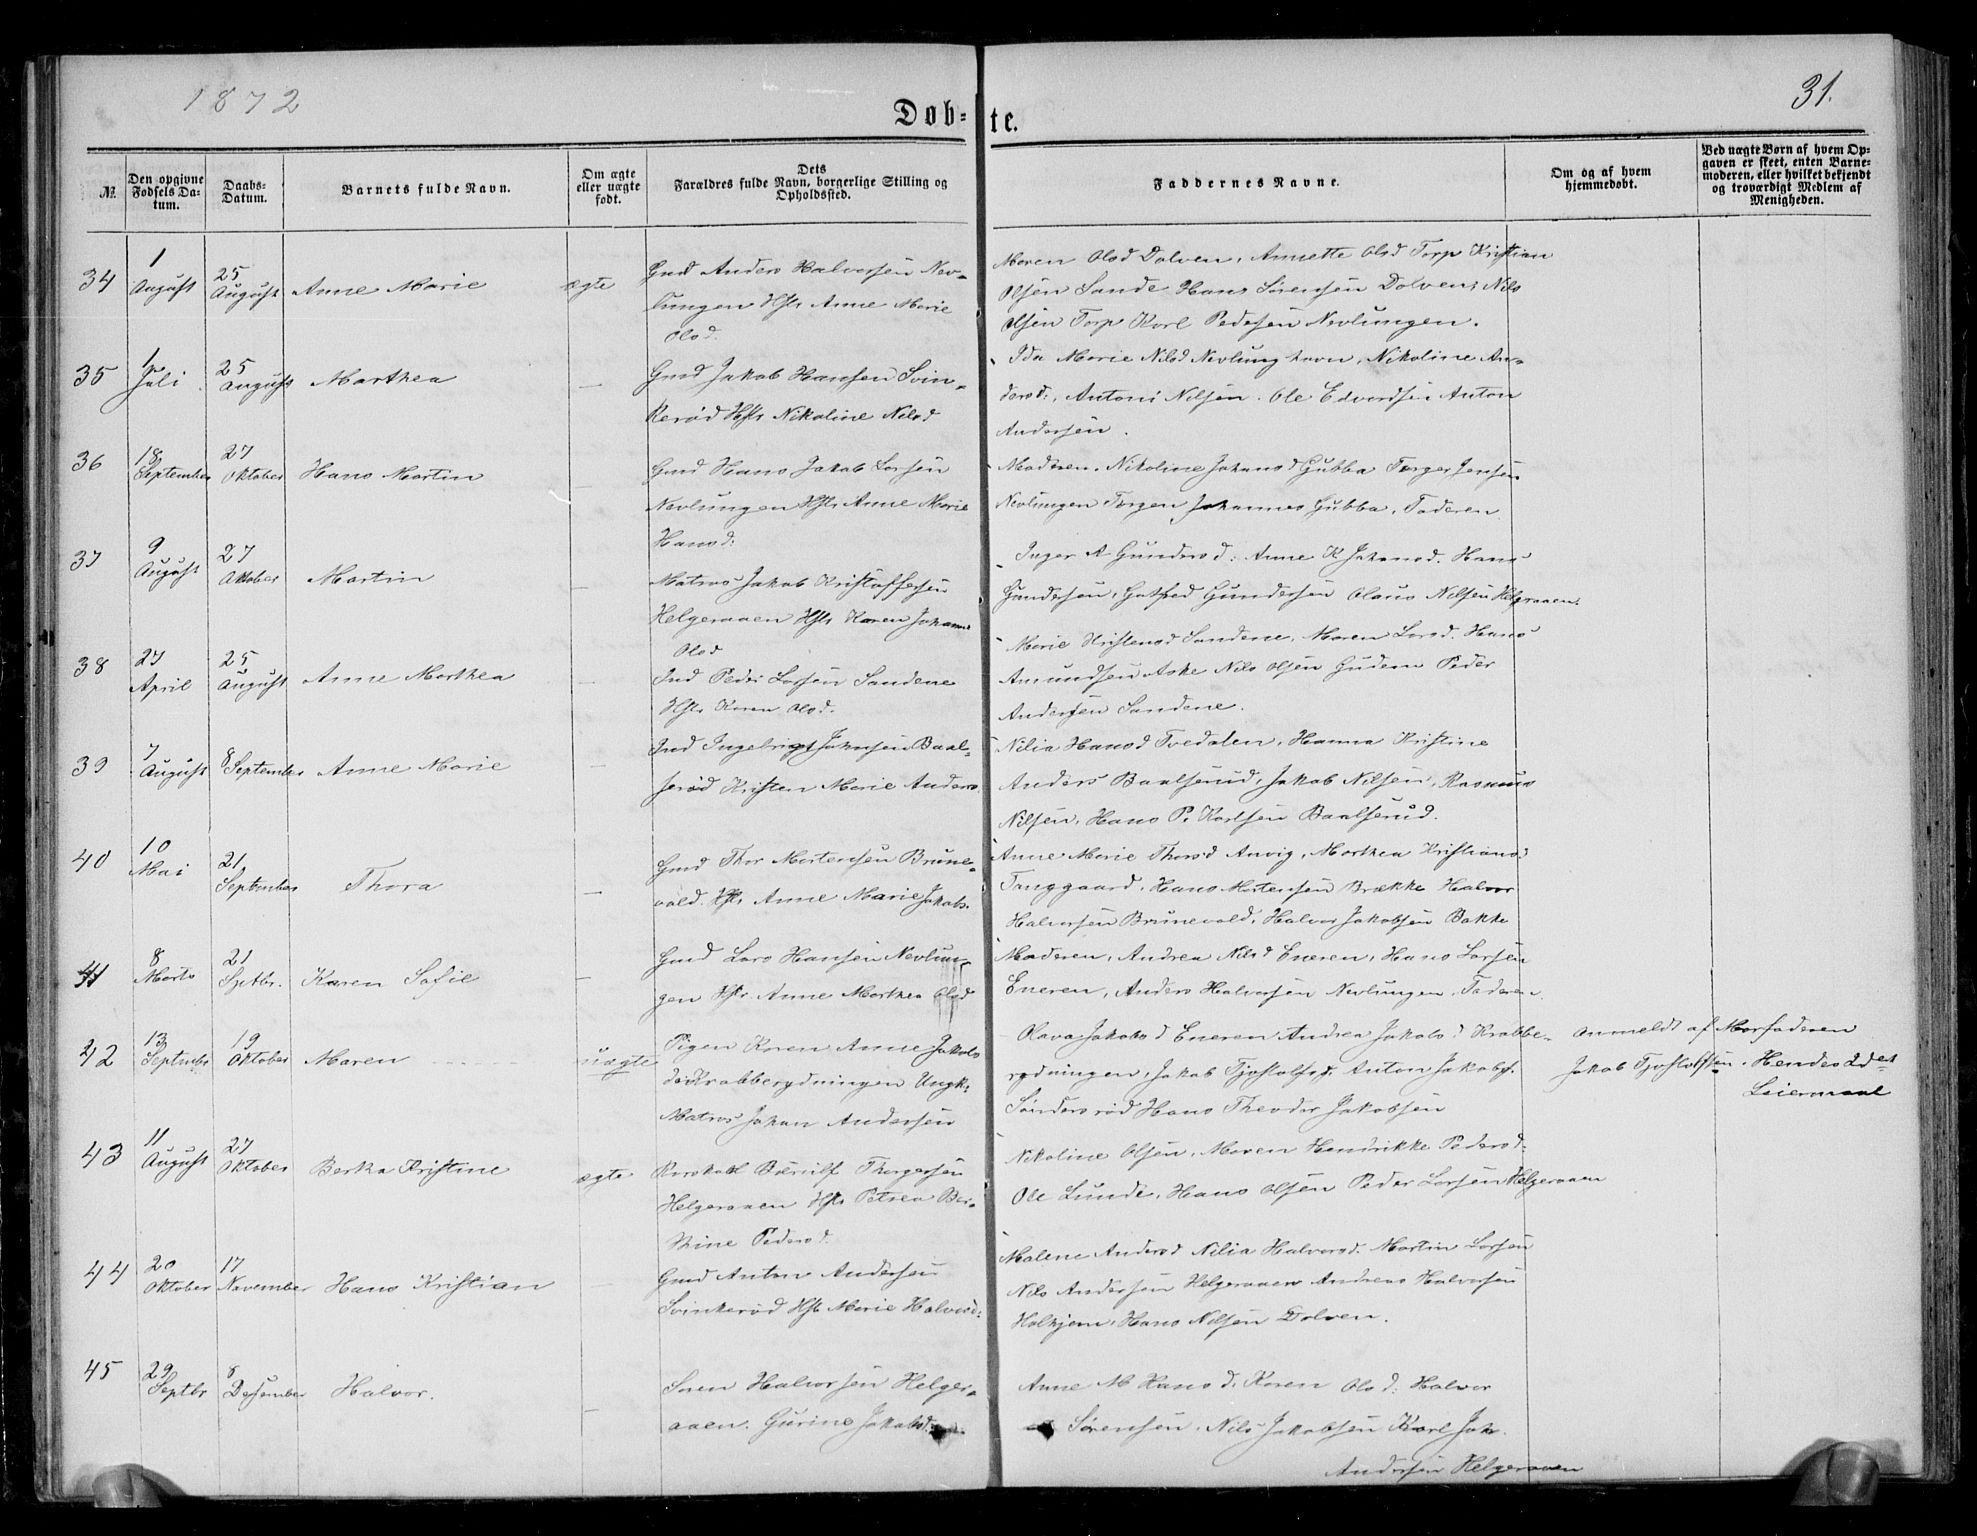 1872
31.
Døb-
te.
№
Den opgivne Fødsels Datum.
Daabs-Datum.
Barnets fulde Navn.
Om ægte eller uægte født.
Dets Forældres fulde Navn, borgerlige Stilling og Opholdssted.
Faddernes Navne.
Om og af hvem hjemmedøbt.
Ved uægte Børn af hvem Opgaven er skeet, enten Barnemoderen, eller hvilket bekjendt og troværdigt Medlem af Menigheden.
34 1 August 25 August Anne Marie ægte
Gmd Anders Halvorsen Nev-
lungen Hstr Anne Marie
Olsd.
Maren Olsd Dolven, Annette Olsd Torp Kristian
Olsen Sande Hans Sørensen Dolven, Nils
Olsen Torp Karl Pedersen Nevlungen.
35 1 Juli 25 August Marthea —
Gmd Jakob Hansen Svin-
kerød Hstr Nikoline Nilsd
Ida Marie Nilsd Nevlunghavn, Nikoline An-
dersd:, Antoni Nilsen. Ole Edvardsen Anton
Andersen.
36 18 September 27 Oktober Hans Martin —
Gmd Hans Jakob Larsen
Nevlungen Hstr Anne Marie
Hansd:
Moderen, Nikoline Johansd Gubba Torger Jensen
Nevlungen Torgen Johannes Gubba, Faderen
37 9 August 27 Oktober Martin —
Matros Jakob Kristoffersen
Helgeraaen Hstr Karen Johanne
Olsd
Inger A Gundersd: Anne K Johansd. Hans
Gundersen, Gutfred Gundersen Olaus Nilsen Helgeraaen.
38 27 April 25 August Anne Marthea —
Ind Peder Larsen Sandene
Hstr Karen Olsd.
Marie Kristensd Sandene, Maren Larsd. Hans
Amundsen Aske Nils Olsen Gudem Peder
Andersen Sandene.
39 7 August 8 September Anne Marie —
Ind Ingebrigt Johnsen Baal-
serød Kristen Marie Anders.
Nilia Hansd Tvedalen, Hanna Kristine
Anders Baalserud, Jakob Nilsen, Rasmus
Nilsen, Hans P. Karlsen Baalserud.
40 10 Mai 21 September Thora —
Gmd Thor Mortensen Brune-
vald. Hstr Anne Marie Jakobs.
Anne Marie Thorsd Anvig, Marthea Kristians:
Tanggaard, Hans Mortensen Brække Halvor
Halvorsen Brunevald, Halvor Jakobsen Bakke
41 8 Marts 21 Septbr. Karen Sofie —
Gmd Lars Hansen Nevlun-
gen Hstr Anne Marthea Olsd
Moderen, Andrea Nilsd Eneren, Hans Larsen
Eneren, Anders Halvorsen Nevlungen, Faderen.
42 13 Septmbr 19 Oktober Maren uægte
Pigen Karen Anne Jakobs
d: Krabberydningen Ungk:
Matros Johan Andersen
Olava Jakobsd Eneren Andrea Jakobsd Krabbe-
rydningen, Jakob Tjostolfsd, Anton Jakobs.
Søndersrød Hans Theodor Jakobsen
anmeldt af Morfaderen
Jakob Tjostolfsen. Hendes 2det
Leiermaal
43 11 August 27 Oktober Berta Kristine ægte
Thorgersen
Helgeraaen Hstr Petrea Ber-
thine Pedersd.
Nikoline Olsen, Maren Hendrikke Pedersd:
Ole Lunde, Hans Olsen Peder Larsen Helgeraaen
44 20 Oktober 17 November Hans Kristian
Gmd Anton Andersen
Svinkerød Hstr Marie Halvorsd:
Malene Andersd Nilia Halvorsd. Martin Larsen
Nils Andersen Helgeraaen Andreas Halvorsen
Halkjem, Hans Nilsen Dolven.
45 29 Septbr 8 Desember Halvor. —
Søren Halvorsen Helger-
aaen. Gurine Jakobsd.
Anne M Hansd. Karen Olsd: Halvor
Sørensen, Nils Jakobsen Karl Joh.
Andersen Helgeraaen